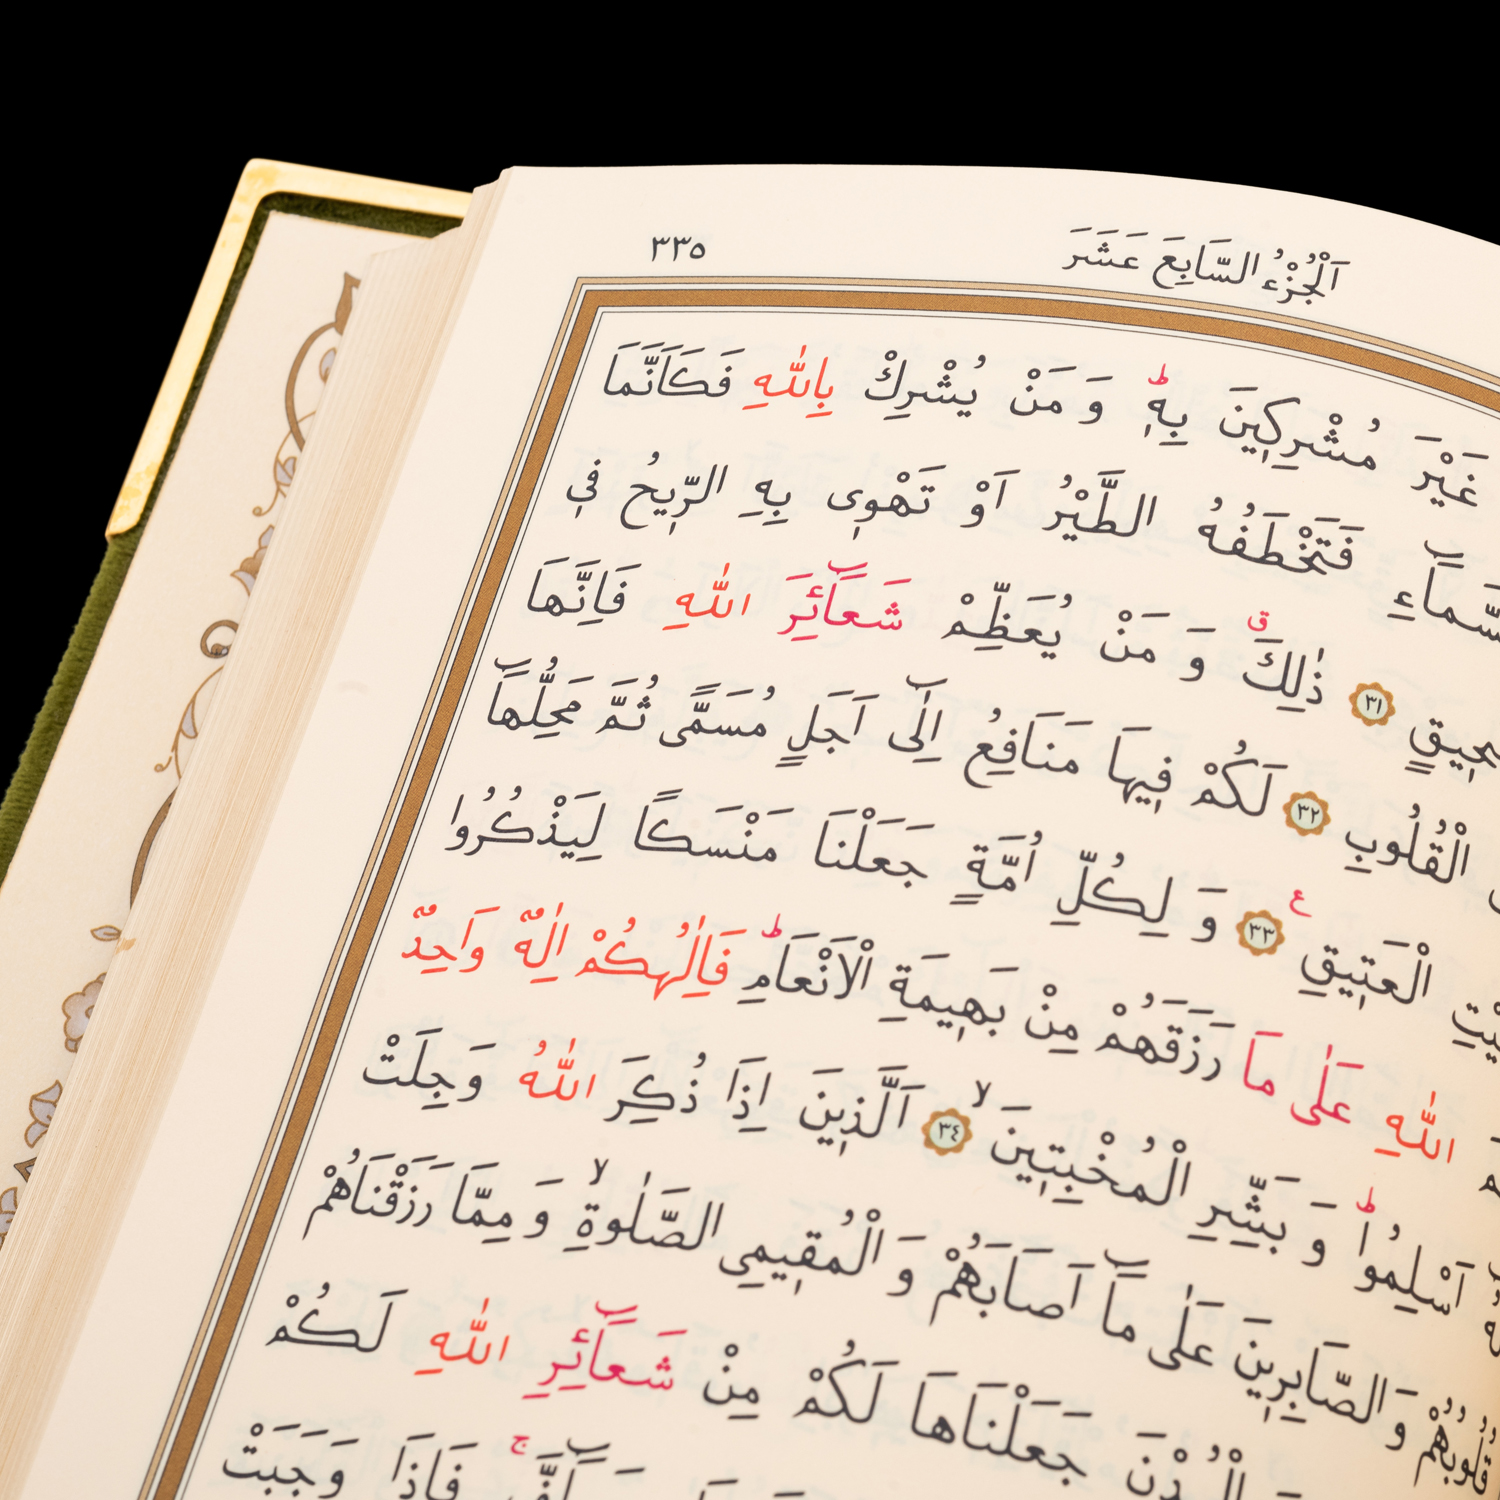 اَلْجُزْءُ السَّابِعَ عَشَرَ
٣٣٥
غَيْرَ مُشْرِكِينَ بِهٖ ط وَ مَنْ يُشْرِكْ بِاللّٰهِ فَكَاَنَّمَا
فَتَخْطَفُهُ الطَّيْرُ اَوْ تَهْوِى بِهِ الرِّيحُ فِي
٣١ ذٰلِكَ ق وَ مَنْ يُعَظِّمْ شَعَٓائِرَ اللّٰهِ فَاِنَّهَا
الْقُلُوبِ ٣٢ لَكُمْ فِيهَا مَنَافِعُ اِلٰٓى اَجَلٍ مُسَمًّى ثُمَّ مَحِلُّهَٓا
الْعَتِيقِ ع ٣٣ وَ لِكُلِّ اُمَّةٍ جَعَلْنَا مَنْسَكًا لِيَذْكُرُوا
اللّٰهِ عَلٰى مَا رَزَقَهُمْ مِنْ بَهِيمَةِ الْاَنْعَامِ ط فَاِلٰهُكُمْ اِلٰهٌ وَاحِدٌ
اَسْلِمُوا ط وَ بَشِّرِ الْمُخْبِتِينَ لا ٣٤ اَلَّذِينَ اِذَا ذُكِرَ اللّٰهُ وَجِلَتْ
قُلُوبُهُمْ وَ الصَّابِرِينَ عَلٰى مَٓا اَصَابَهُمْ وَ الْمُقِيمِي الصَّلٰوةِ لا وَ مِمَّا رَزَقْنَاهُمْ
جَعَلْنَاهَا لَكُمْ مِنْ شَعَٓائِرِ اللّٰهِ لَكُمْ
فَاِذَا وَجَبَتْ